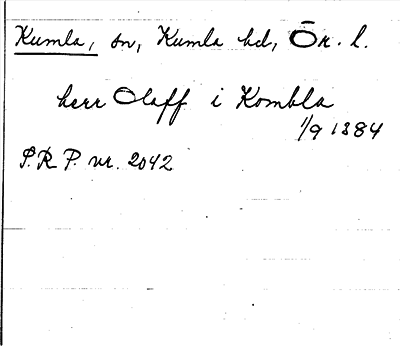 Kumla, sn, Kumla hd, Ör. l.
herr Olaff i Kombla
1/9 1384
S.R.P. nr. 2042